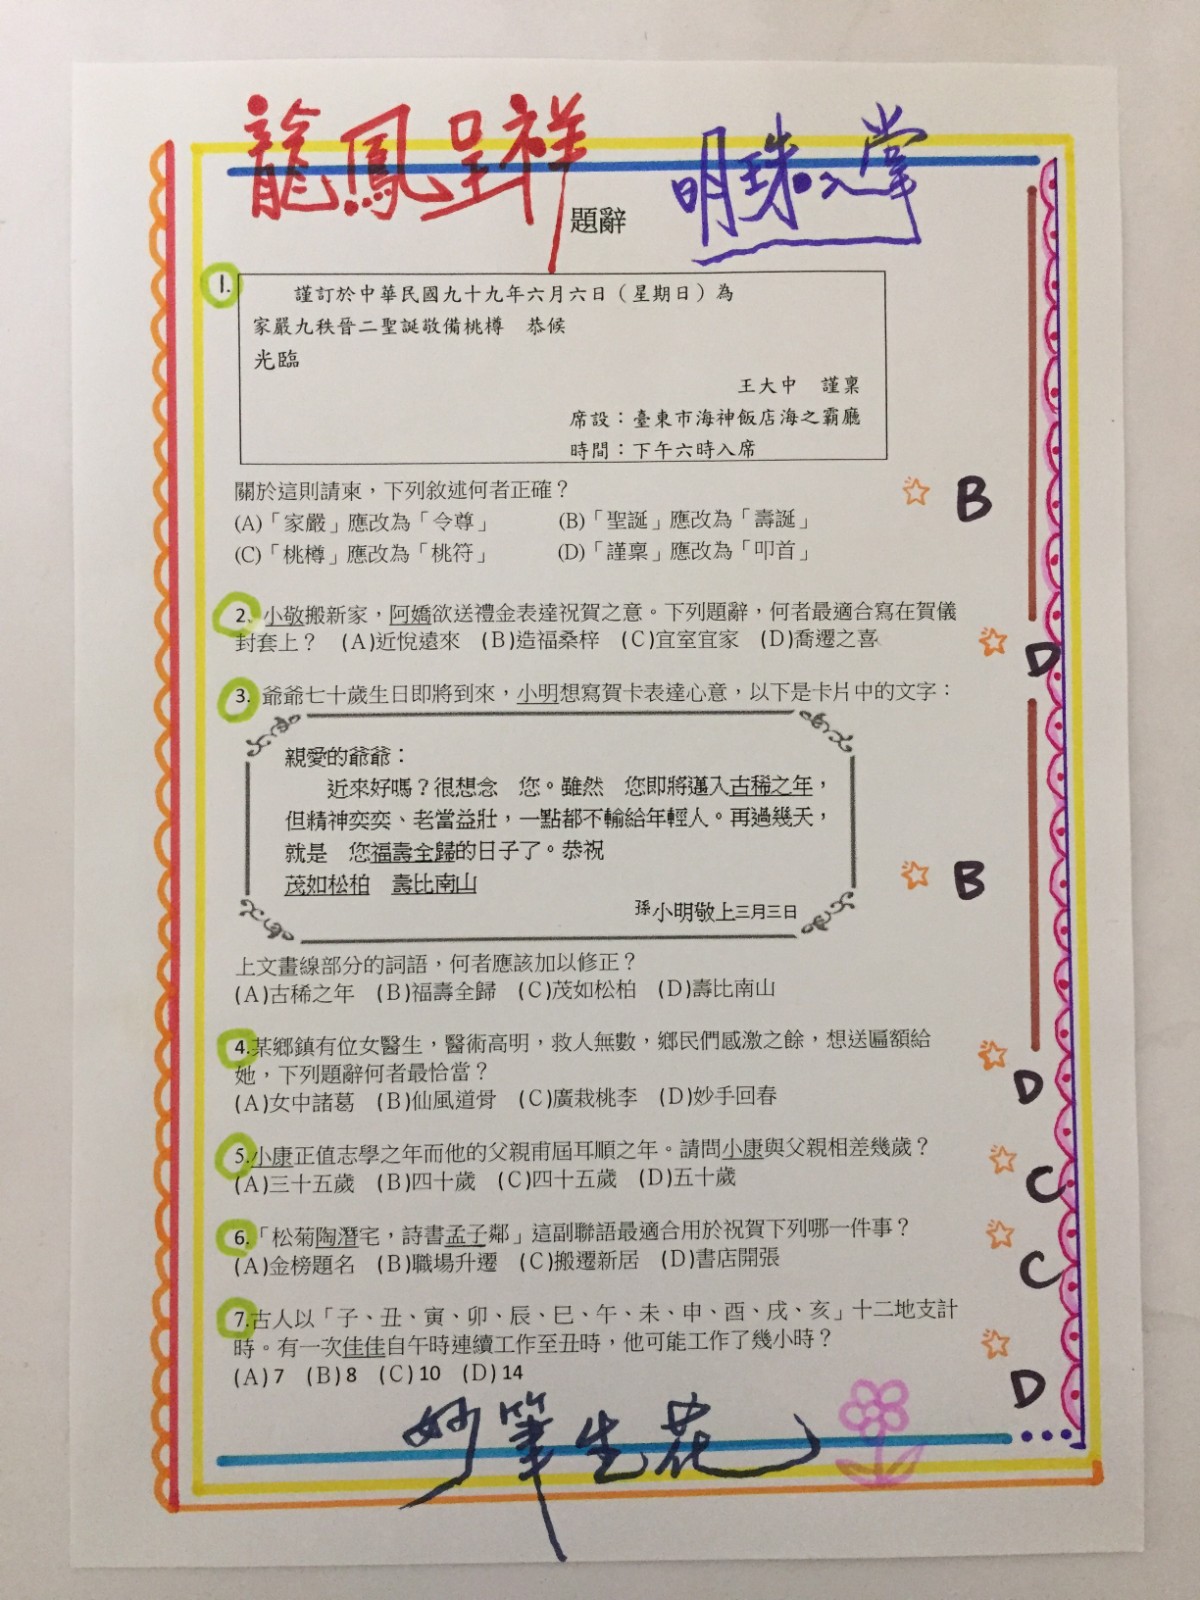 龍鳳呈祥
明珠入掌
題辭
1.
謹訂於中華民國九十九年六月六日（星期日）為
家嚴九秩晉二聖誕敬備桃樽　恭候
光臨
王大中　謹稟
席設：臺東市海神飯店海之霸廳
時間：下午六時入席
關於這則請柬，下列敘述何者正確？
B
(A)「家嚴」應改為「令尊」　(B)「聖誕」應改為「壽誕」
(C)「桃樽」應改為「桃符」　(D)「謹稟」應改為「叩首」
2、小敬搬新家，阿嬌欲送禮金表達祝賀之意。下列題辭，何者最適合寫在賀儀
封套上？　(A)近悅遠來　(B)造福桑梓　(C)宜室宜家　(D)喬遷之喜
D
3. 爺爺七十歲生日即將到來，小明想寫賀卡表達心意，以下是卡片中的文字：
親愛的爺爺：
近來好嗎？很想念　您。雖然　您即將邁入古稀之年，
但精神奕奕、老當益壯，一點都不輸給年輕人。再過幾天，
就是　您福壽全歸的日子了。恭祝
茂如松柏　壽比南山
B
孫小明敬上三月三日
上文畫線部分的詞語，何者應該加以修正？
(A)古稀之年　(B)福壽全歸　(C)茂如松柏　(D)壽比南山
4.某鄉鎮有位女醫生，醫術高明，救人無數，鄉民們感激之餘，想送匾額給
她，下列題辭何者最恰當？
D
(A)女中諸葛　(B)仙風道骨　(C)廣栽桃李　(D)妙手回春
5.小康正值志學之年而他的父親甫屆耳順之年。請問小康與父親相差幾歲？
(A)三十五歲　(B)四十歲　(C)四十五歲　(D)五十歲
C
6.「松菊陶潛宅，詩書孟子鄰」這副聯語最適合用於祝賀下列哪一件事？
(A)金榜題名　(B)職場升遷　(C)搬遷新居　(D)書店開張
C
7.古人以「子、丑、寅、卯、辰、巳、午、未、申、酉、戌、亥」十二地支計
時。有一次佳佳自午時連續工作至丑時，他可能工作了幾小時？
(A) 7　(B) 8　(C) 10　(D) 14
D
妙筆生花